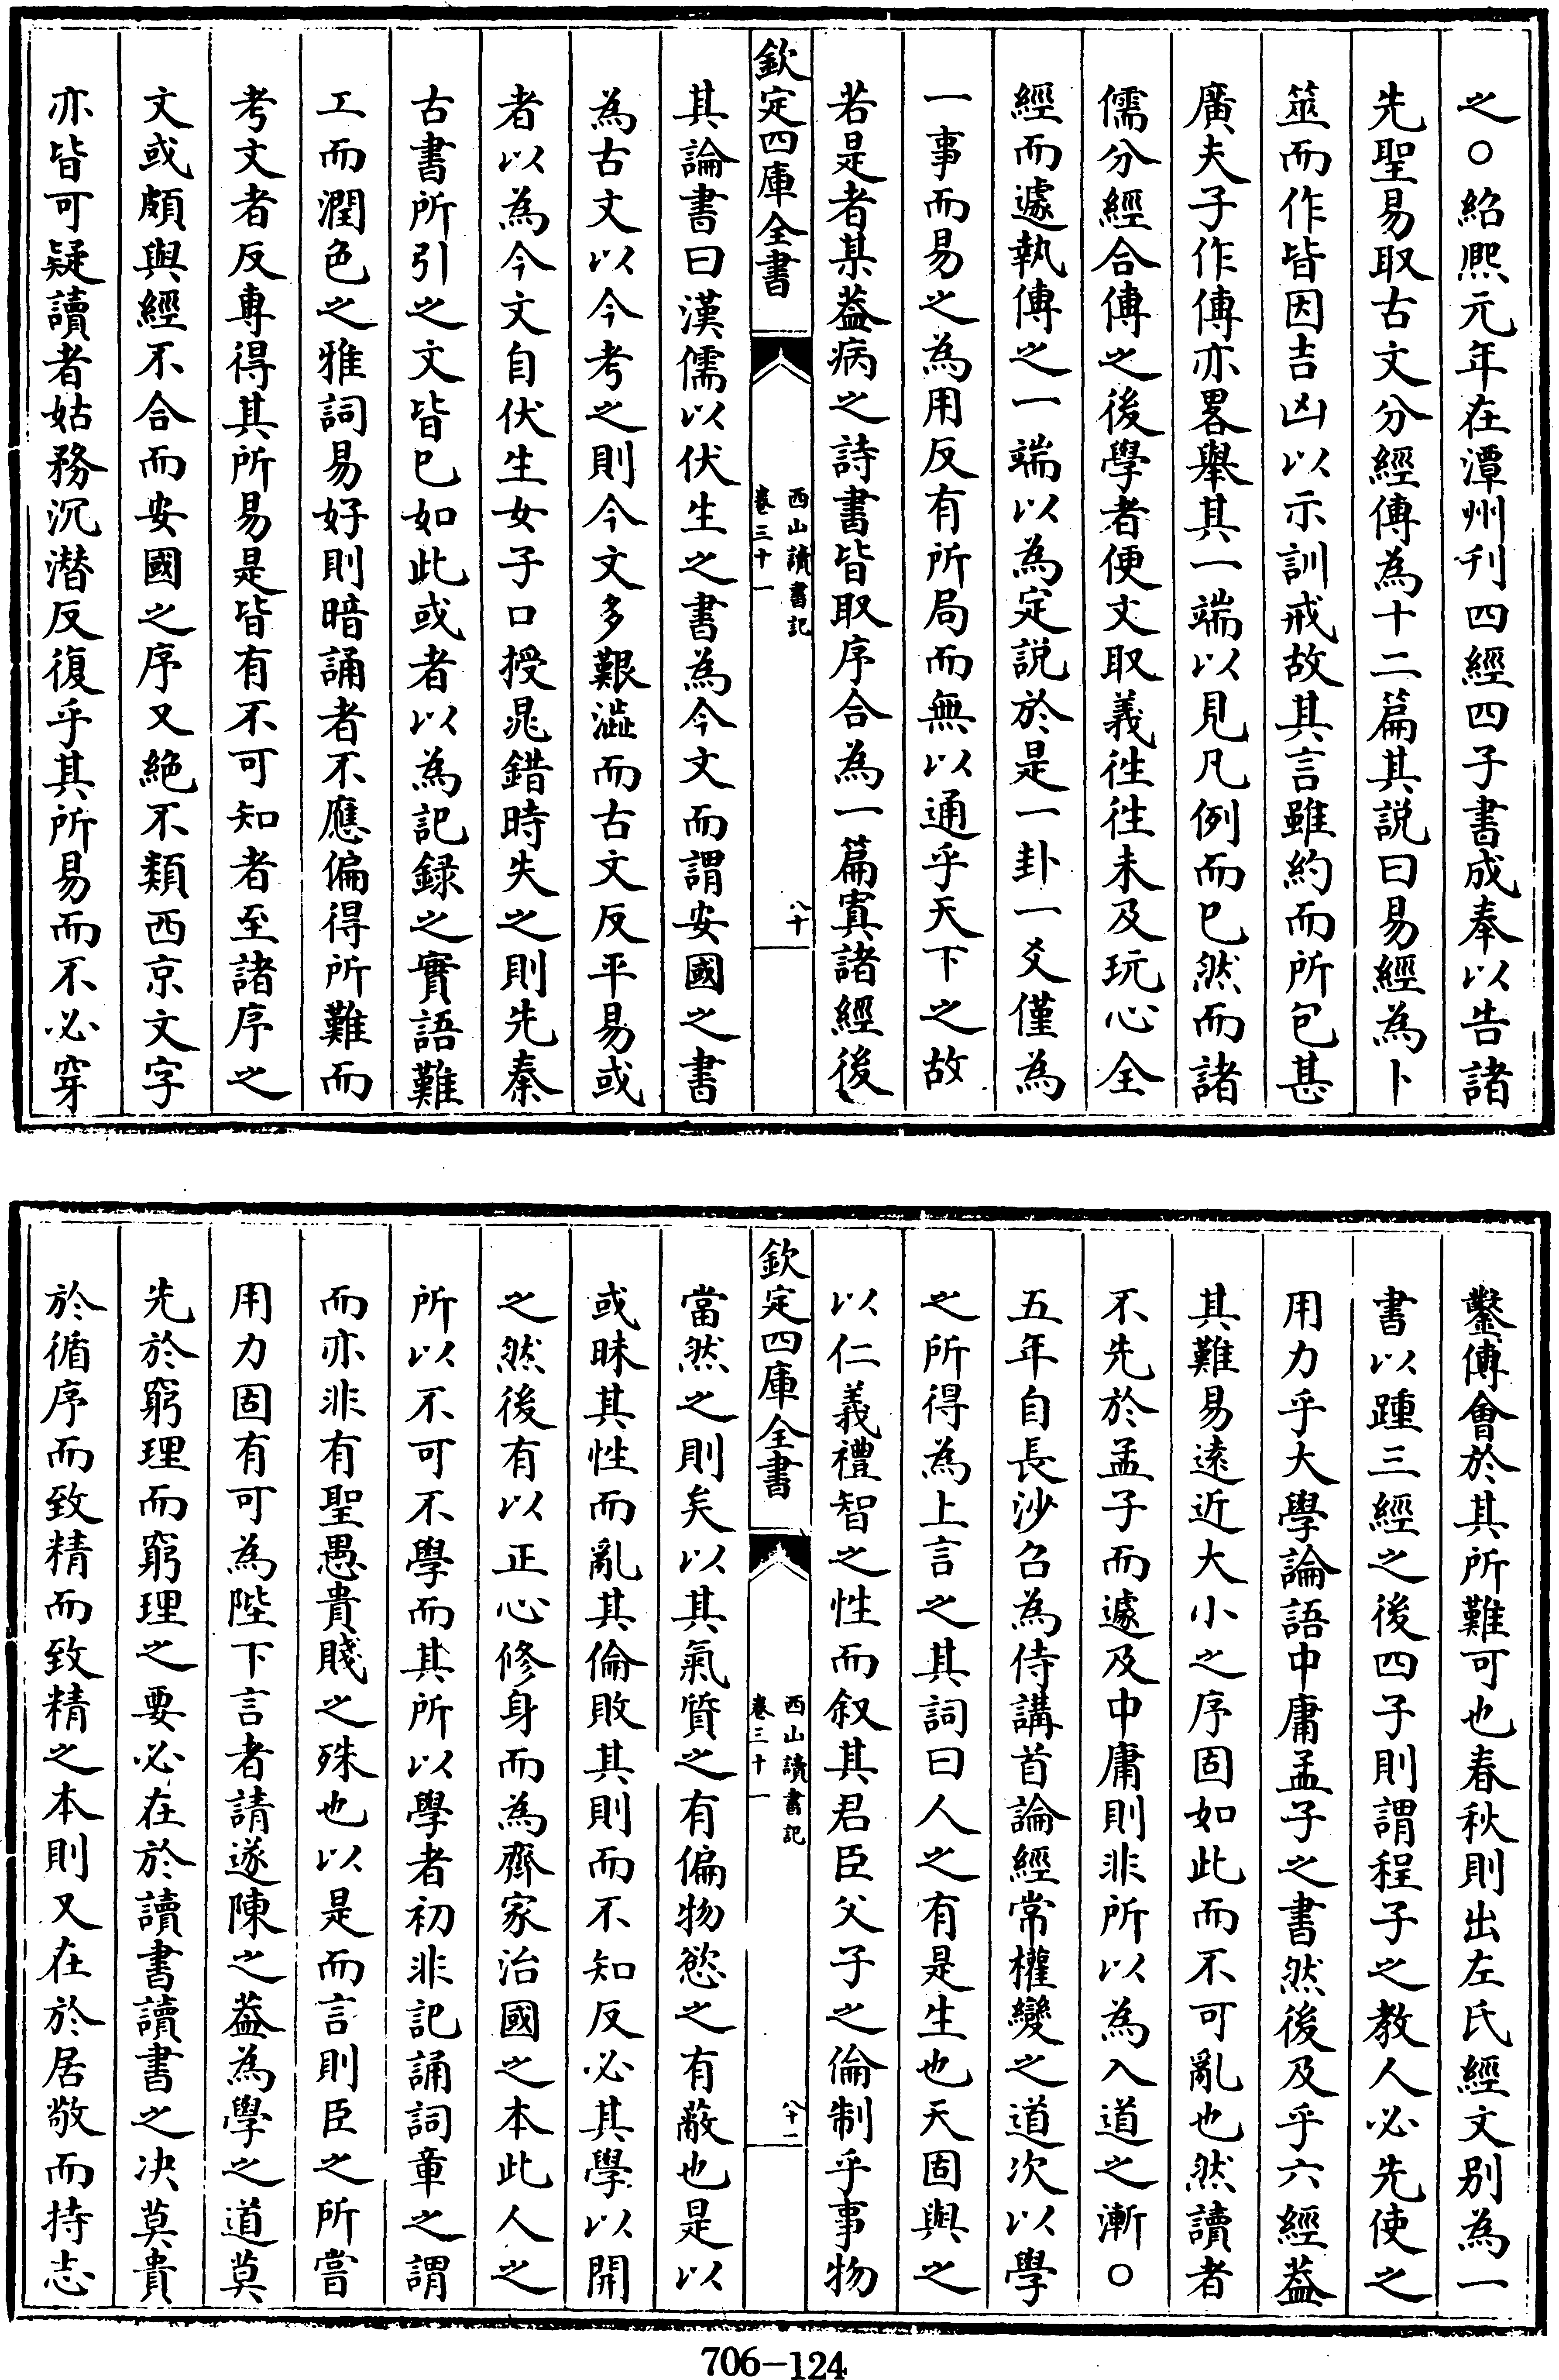 之○紹熈元年在潭州刊四經四子書成奉以告諸
先聖易取古文分經傳為十二篇其説曰易經為卜
筮而作皆因吉凶以示訓戒故其言雖約而所包甚
廣夫子作傳亦畧舉其一端以見凡例而已然而諸
儒分經合傳之後學者便文取義徃徃未及玩心全
經而遽執傳之一端以為定説於是一卦一爻僅為
一事而易之為用反有所局而無以通乎天下之故
若是者某葢病之詩書皆取序合為一篇寘諸經後
欽定四庫全書
西山讀書記
卷三十一
八十
其論書曰漢儒以伏生之書為今文而謂安國之書
為古文以今考之則今文多艱澁而古文反平易或
者以為今文自伏生女子口授晁錯時失之則先秦
古書所引之文皆已如此或者以為記録之實語難
工而潤色之雅詞易好則暗誦者不應偏得所難而
考文者反專得其所易是皆有不可知者至諸序之
文或頗與經不合而安國之序又絶不類西京文字
亦皆可疑讀者姑務沉潜反復乎其所易而不必穿
鑿傅會於其所難可也春秋則出左氏經文别為一
書以踵三經之後四子則謂程子之教人必先使之
用力乎大學論語中庸孟子之書然後及乎六經葢
其難易逺近大小之序固如此而不可亂也然讀者
不先於孟子而遽及中庸則非所以為入道之漸○
五年自長沙召為侍講首論經常權變之道次以學
之所得為上言之其詞曰人之有是生也天固與之
以仁義禮智之性而叙其君臣父子之倫制乎事物
欽定四庫全書
西山讀書記
卷三十一
八十一
當然之則矣以其氣質之有偏物慾之有蔽也是以
或昧其性而亂其倫敗其則而不知反必其學以開
之然後有以正心修身而為齊家治國之本此人之
所以不可不學而其所以學者初非記誦詞章之謂
而亦非有聖愚貴賤之殊也以是而言則臣之所嘗
用力固有可為陛下言者請遂陳之葢為學之道莫
先於窮理而窮理之要必在於讀書讀書之决莫貴
於循序而致精而致精之本則又在於居敬而持志
706-124